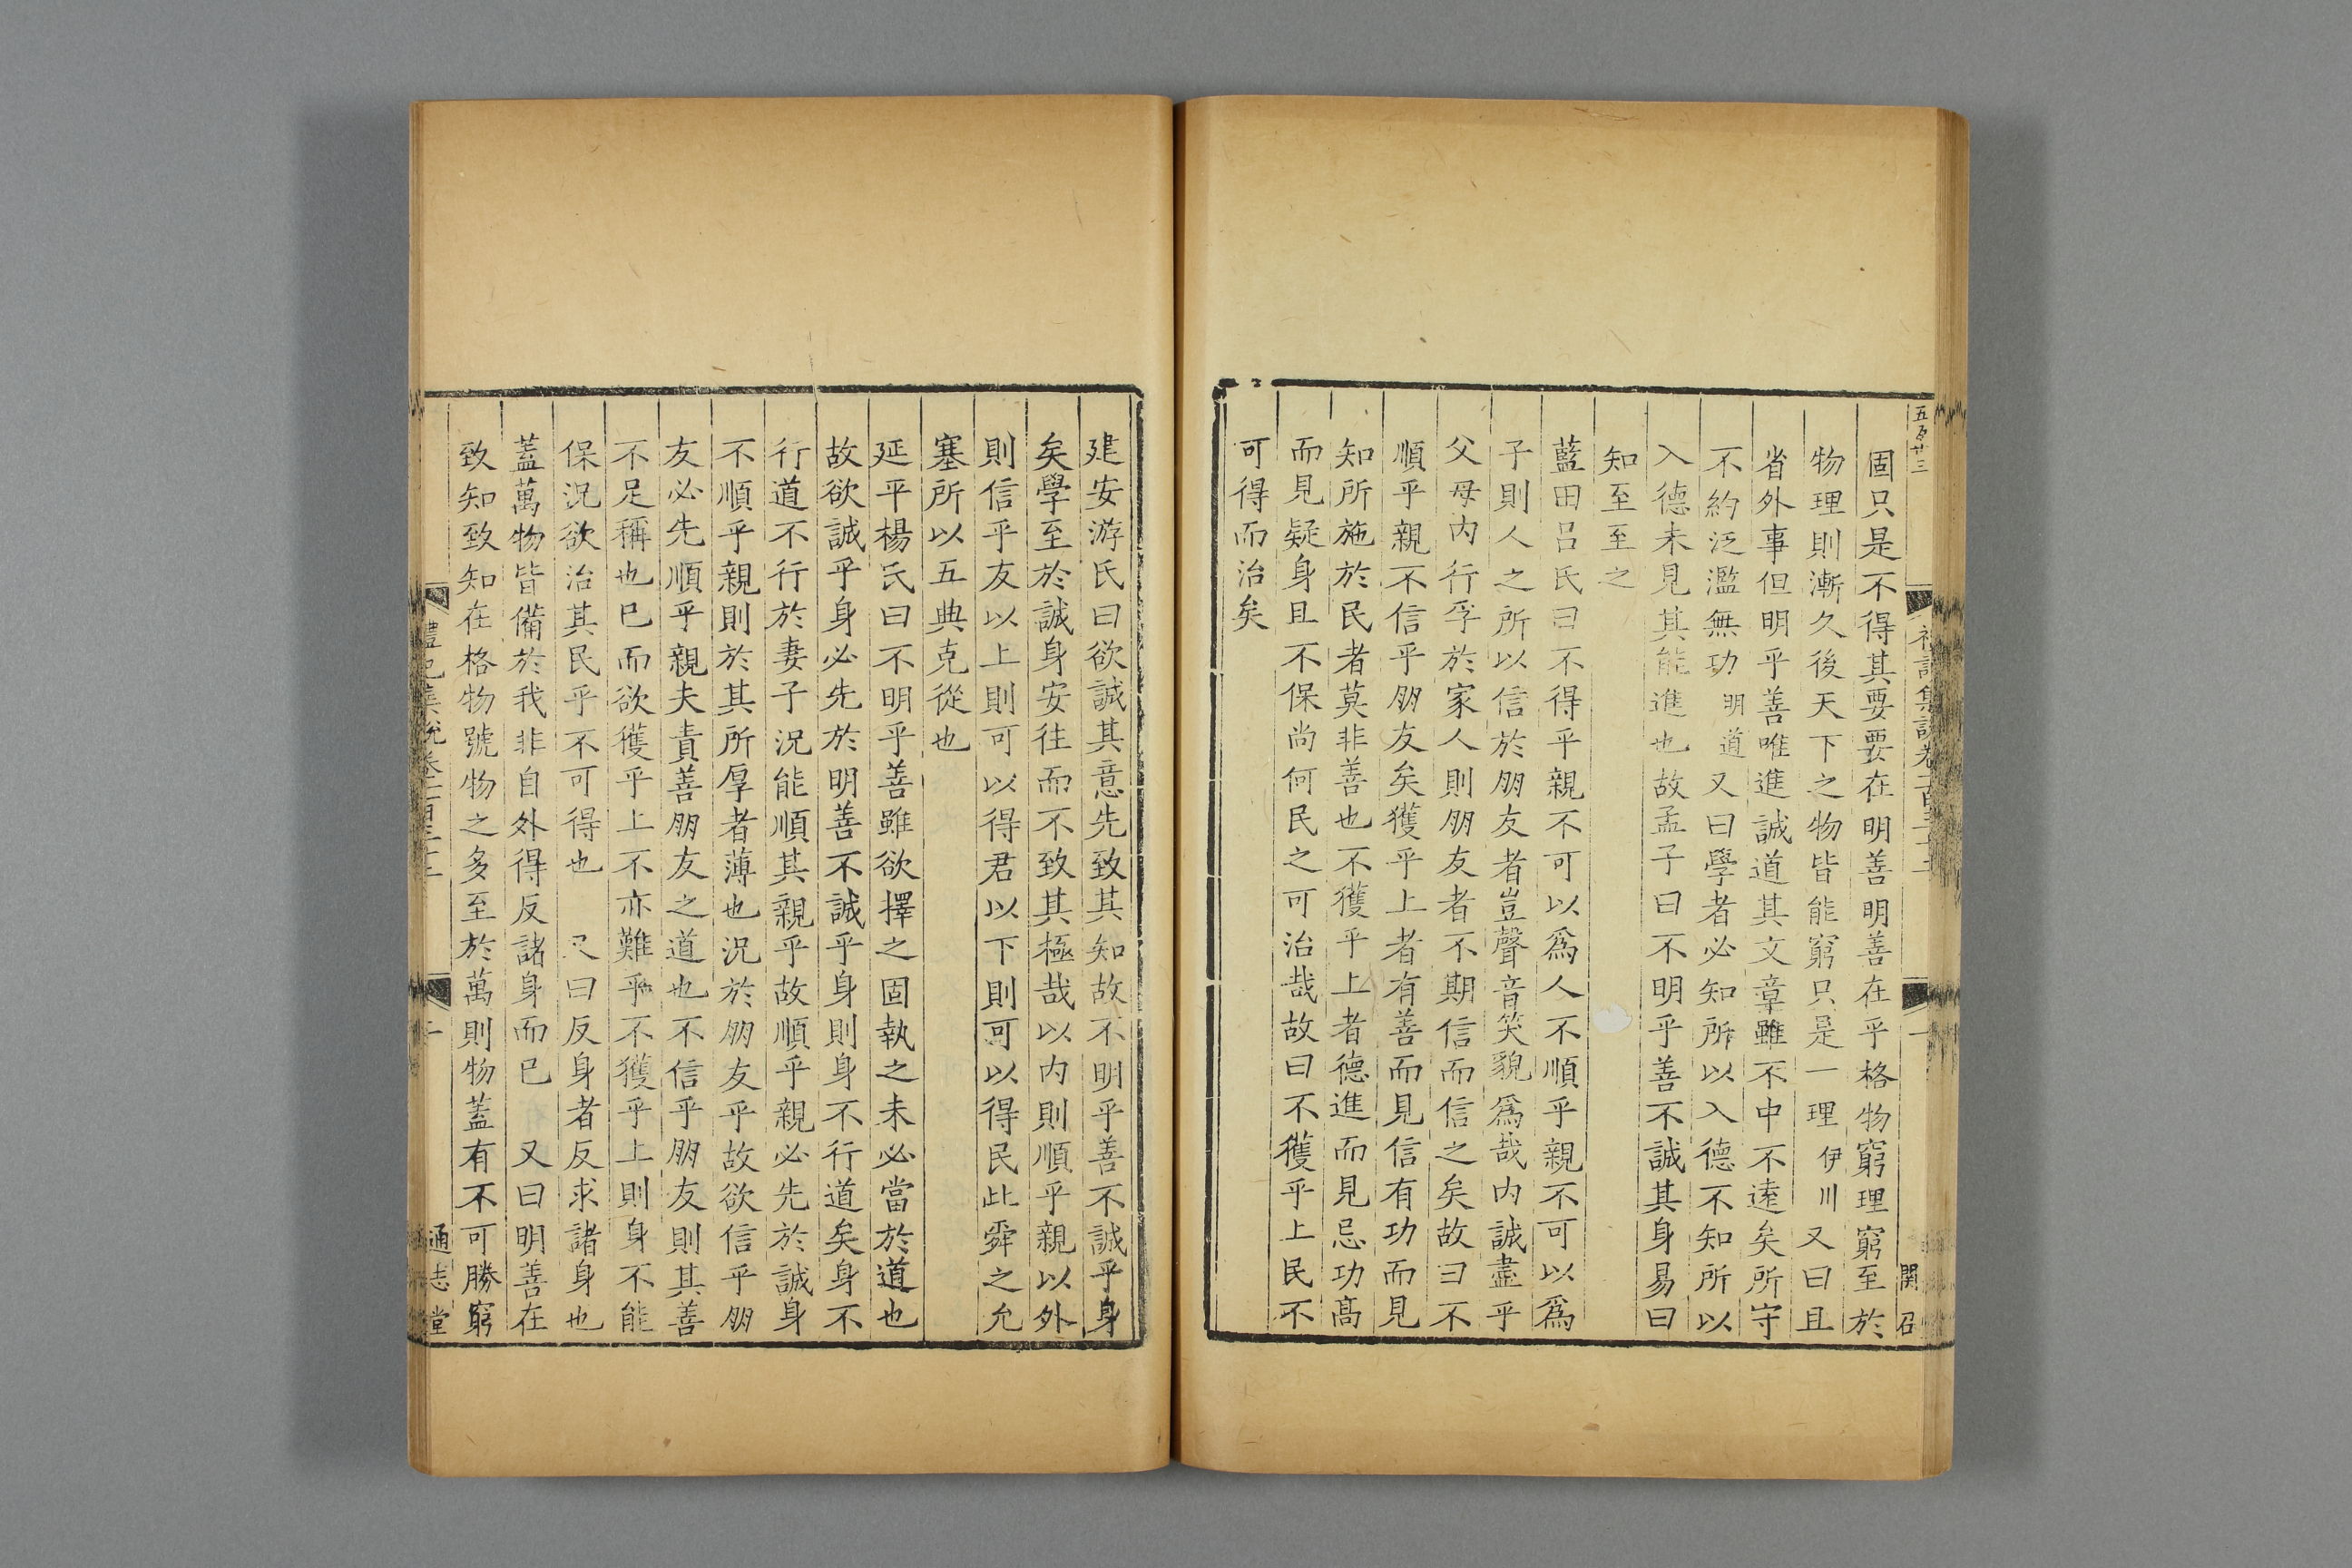 五百廿三
關召
固只是不得其要要在明善明善在乎格物窮理窮至於
物理則漸久後天下之物皆能窮只是一理伊川又曰且
省外事但明乎善唯進誠道其文章雖不中不遠矣所守
不約泛濫無功明道又曰學者必知所以入德不知所以
入德未見其能進也故孟子曰不明乎善不誠其身易曰
知至至之
藍田呂氏曰不得乎親不可以爲人不順乎親不可以爲
子則人之所以信於朋友者豈聲音笑貌爲哉内誠盡乎
父母内行孚於家人則朋友者不期信而信之矣故曰不
順乎親不信乎朋友矣獲乎上者有善而見信有功而見
知所施於民者莫非善也不獲乎上者德進而見忌功高
而見疑身且不保尚何民之可治哉故曰不獲乎上民不
可得而治矣
建安游氏曰欲誠其意先致其知故不明乎善不誠乎身
矣學至於誠身安往而不致其極哉以内則順乎親以外
則信乎友以上則可以得君以下則可以得民此舜之允
塞所以五典克從也
延平楊氏曰不明乎善雖欲擇之固執之未必當於道也
故欲誠乎身必先於明善不誠乎身則身不行道矣身不
行道不行於妻子況能順其親乎故順乎親必先於誠身
不順乎親則於其所厚者薄也況於朋友乎故欲信乎朋
友必先順乎親夫責善朋友之道也不信乎朋友則其善
不足稱也已而欲獲乎上不亦難乎不獲乎上則身不能
保況欲治其民乎不可得也 又曰反身者反求諸身也
蓋萬物皆備於我非自外得反諸身而已 又曰明善在
致知致知在格物號物之多至於萬則物蓋有不可勝窮
二
通志堂